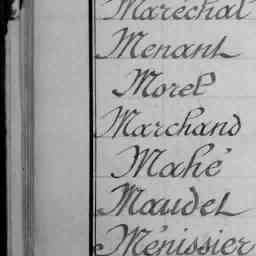 Maréchal
Menant
Morel
Marchand
Mahé
Maudet
Ménissier